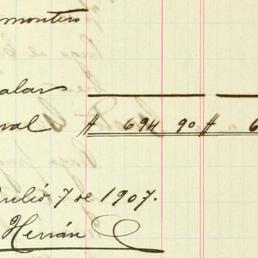 montero
alar
val # 694 90 # 6
Julió 7 de 1907.
Herrán